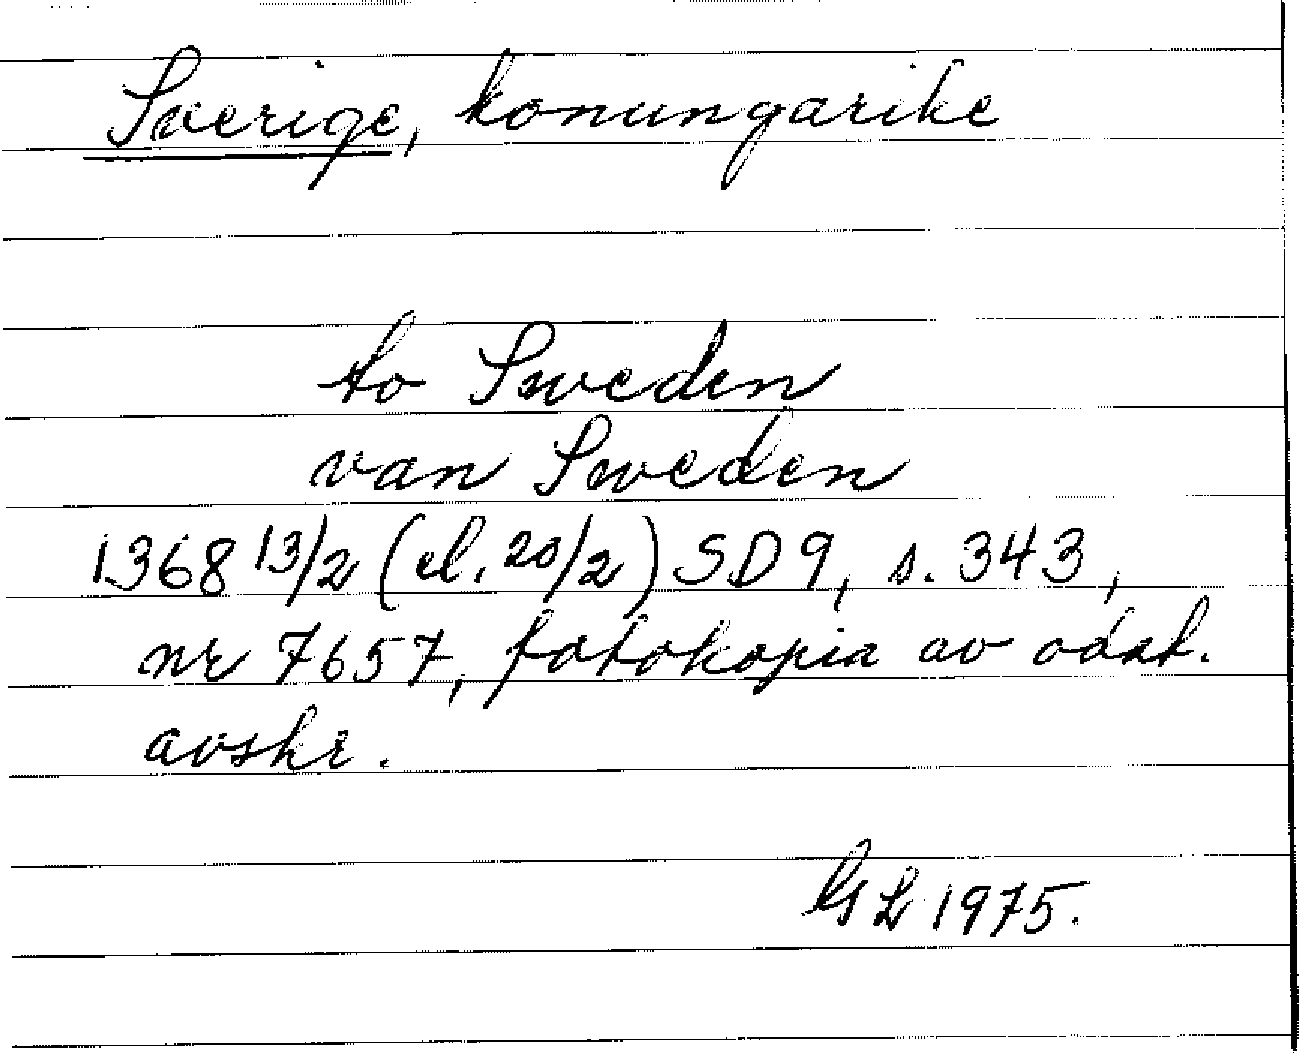 Sverige, konungarike
to Sweden
van Sweden
1368 13/2 (el. 20/2) SD 9, s. 343,
nr 7657, fotokopia av odat.
avskr.
GL 1975.